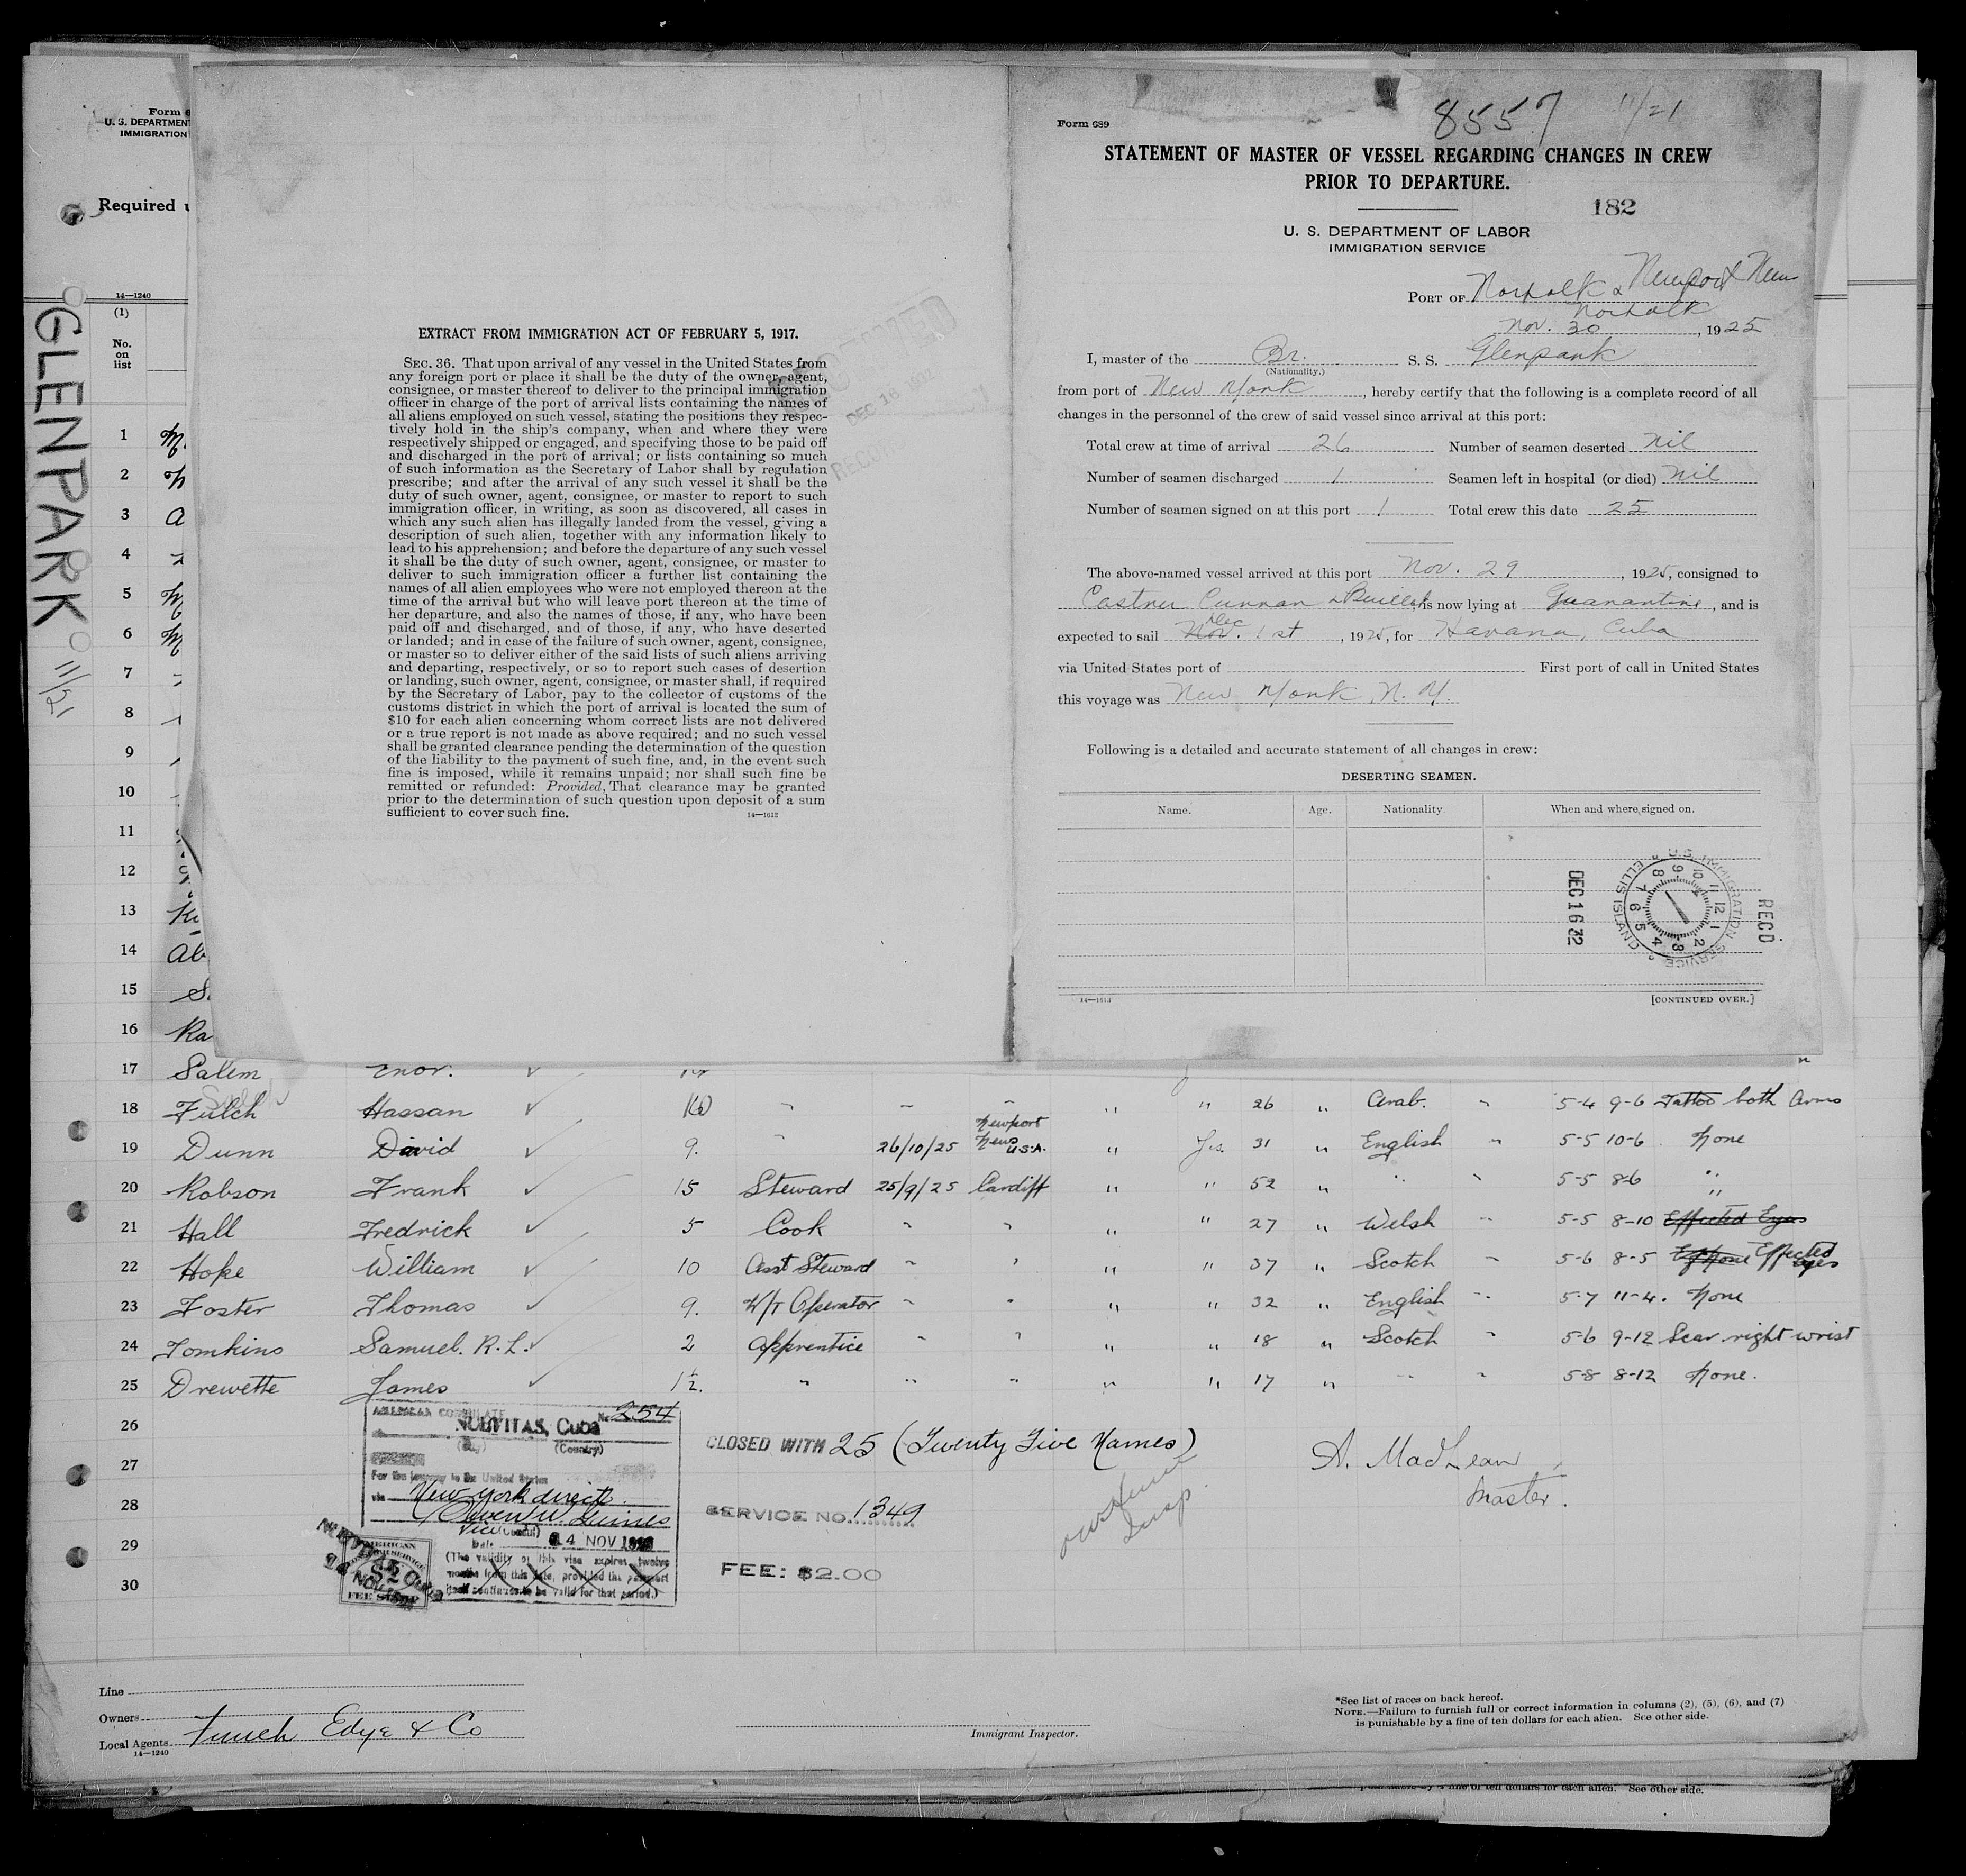 Form 6
U. S. DEPARTMENT
IMMIGRATION
Required
14—1240
(1)
No.
on
list
GLENPARK 11/21
1
2
3
4
5
6
7
8
9
10
11
12
13
14
15
16 Ra
EXTRACT FROM IMMIGRATION ACT OF FEBRUARY 5, 1917.
SEC. 36. That upon arrival of any vessel in the United States from
any foreign port or place it shall be the duty of the owner, agent,
consignee, or master thereof to deliver to the principal immigration
officer in charge of the port of arrival lists containing the names of
all aliens employed on such vessel, stating the positions they respec-
tively hold in the ship's company, when and where they were
respectively shipped or engaged, and specifying those to be paid off
and discharged in the port of arrival; or lists containing so much
of such information as the Secretary of Labor shall by regulation
prescribe; and after the arrival of any such vessel it shall be the
duty of such owner, agent, consignee, or master to report to such
immigration officer, in writing, as soon as discovered, all cases in
which any such alien has illegally landed from the vessel, giving a
description of such alien, together with any information likely to
lead to his apprehension; and before the departure of any such vessel
it shall be the duty of such owner, agent, consignee, or master to
deliver to such immigration officer a further list containing the
names of all alien employees who were not employed thereon at the
time of the arrival but who will leave port thereon at the time of
her departure, and also the names of those, if any, who have been
paid off and discharged, and of those, if any, who have deserted
or landed; and in case of the failure of such owner, agent, consignee,
or master so to deliver either of the said lists of such aliens arriving
and departing, respectively, or so to report such cases of desertion
or landing, such owner, agent, consignee, or master shall, if required
by the Secretary of Labor, pay to the collector of customs of the
customs district in which the port of arrival is located the sum of
$10 for each alien concerning whom correct lists are not delivered
or a true report is not made as above required; and no such vessel
shall be granted clearance pending the determination of the question
of the liability to the payment of such fine, and, in the event such
fine is imposed, while it remains unpaid; nor shall such fine be
remitted or refunded: Provided, That clearance may be granted
prior to the determination of such question upon deposit of a sum
sufficient to cover such fine.
14—1613
DEC 16
8557 11/21
Form 689
STATEMENT OF MASTER OF VESSEL REGARDING CHANGES IN CREW
PRIOR TO DEPARTURE.
182
U. S. DEPARTMENT OF LABOR
IMMIGRATION SERVICE
PORT OF Norfolk & Newport New
Norfolk
Nov. 30, 1925
I, master of the Br. S. S. Glenpark
(Nationality.)
from port of New York, hereby certify that the following is a complete record of all
changes in the personnel of the crew of said vessel since arrival at this port:
Total crew at time of arrival 26 Number of seamen deserted nil
Number of seamen discharged 1 Seamen left in hospital (or died) nil
Number of seamen signed on at this port 1 Total crew this date 25
The above-named vessel arrived at this port Nov. 29, 1925, consigned to
Castner Curran & Bullitt is now lying at Quarantine, and is
expected to sail Nov. Dec 1st, 1925, for Havana, Cuba
via United States port of First port of call in United States
this voyage was New York, N. Y.
Following is a detailed and accurate statement of all changes in crew:
DESERTING SEAMEN.
Name. Age. Nationality When and where signed on.
REC'D
U.S. IMMIGRATION SERVICE
ELLIS ISLAND
DEC 16 32
14—1613
[CONTINUED OVER.]
17 Salem Enor.
18 Fulch Hassan 10 " " " " " 26 " Arab. " 5-4 9-6 Tattoo both Arms
19 Dunn David 9. " 26/10/25 Newport News U.S.A. " Yes. 31 " English " 5-5 10-6 None
20 Robson Frank 15 Steward 25/9/25 Cardiff " " 52 " " " 5-5 8-6 "
21 Hall Fredrick 5 Cook " " " " 27 " Welsh " 5-5 8-10 Effected Eyes "
22 Hope William 10 Asst Steward " " " " 37 " Scotch " 5-6 8-5 Effected eyes
23 Foster Thomas 9. W/T Operator " " " " 32 " English " 5-7 11-4. None
24 Tomkins Samuel. R. L. 2 Apprentice " " " " 18 " Scotch " 5-6 9-12 Scar right wrist
25 Drewette James 1½. " " " " " 17 " " " 5-8 8-12 None.
26
27
28
29
30
AMERICAN CONSULATE No. 254
NUEVITAS, Cuba
(City) (Country)
For the journey to the United States
via New York direct
Vice (Consul)
Date 14 NOV 1925
(The validity of this visa expires twelve
months from this date, provided the passport
itself continues to be valid for that period.)
AMERICAN
$2
FEE STAMP
CLOSED WITH 25 (Twenty Five Names)
SERVICE NO. 1349
FEE: $2.00
Insp.
A. MacLean
Master.
Line
Owners
Local Agents Funch Edye & Co
14—1240
Immigrant Inspector.
*See list of races on back hereof.
NOTE.—Failure to furnish full or correct information in columns (2), (5), (6), and (7)
is punishable by a fine of ten dollars for each alien. See other side.
of ten dollars for each alien. See other side.